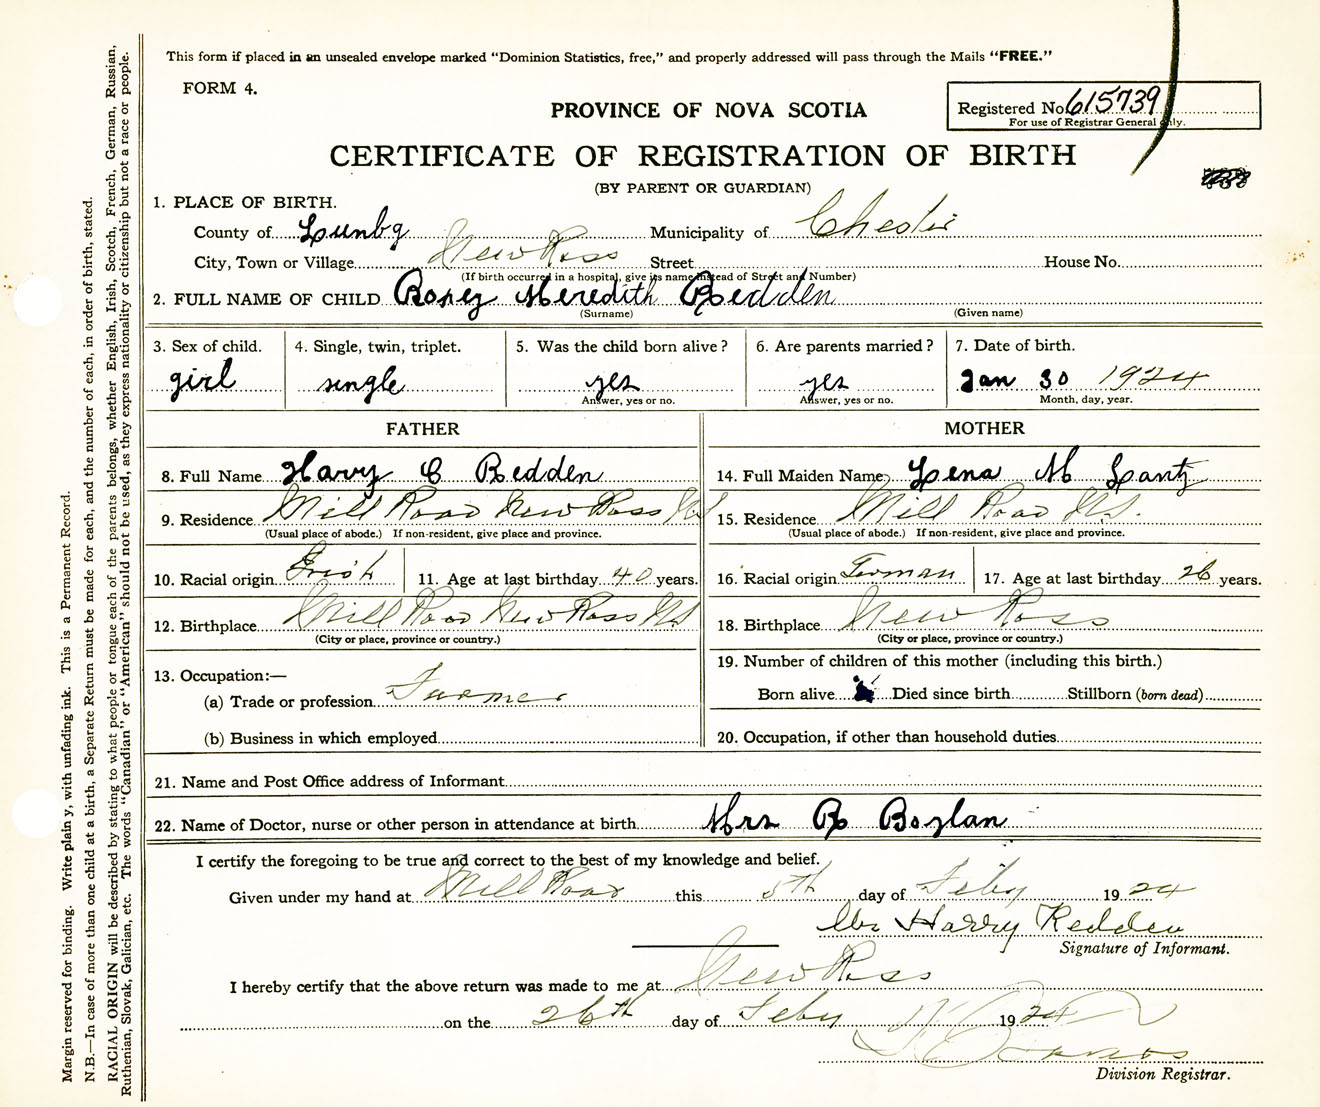 This form if placed in an unsealed envelope marked "Dominion Statistics, free," and properly addressed will pass through the Mails "FREE."
FORM 4.
PROVINCE OF NOVA SCOTIA
Registered No. 615739
For use of Registrar General only.
CERTIFICATE OF REGISTRATION OF BIRTH
(BY PARENT OR GUARDIAN)
1. PLACE OF BIRTH.
County of Lunbg Municipality of Chester
City, Town or Village New Ross Street House No.
(If birth occurred in a hospital, give its name instead of Street and Number)
2. FULL NAME OF CHILD Rosey Meredith Redden
(Surname) (Given name)
3. Sex of child. 4. Single, twin, triplet. 5. Was the child born alive? 6. Are parents married? 7. Date of birth.
girl single yes yes Jan 30 1924
Answer, yes or no. Answer, yes or no. Month, day, year.
FATHER MOTHER
8. Full Name Harry C Redden 14. Full Maiden Name Lena M Lantz
9. Residence Mill Road New Ross NS 15. Residence Mill Road N.S.
(Usual place of abode.) If non-resident, give place and province. (Usual place of abode.) If non-resident, give place and province.
10. Racial origin Irish 11. Age at last birthday 40 years. 16. Racial origin German 17. Age at last birthday 26 years.
12. Birthplace Mill Road New Ross NS 18. Birthplace New Ross
(City or place, province or country.) (City or place, province or country.)
13. Occupation:— 19. Number of children of this mother (including this birth.)
(a) Trade or profession Farmer Born alive Died since birth Stillborn (born dead)
(b) Business in which employed 20. Occupation, if other than household duties
21. Name and Post Office address of Informant
22. Name of Doctor, nurse or other person in attendance at birth Mrs R Boylan
I certify the foregoing to be true and correct to the best of my knowledge and belief.
Given under my hand at Mill Road this 5th day of Feby 1924
Mr Harry Redden
Signature of Informant.
I hereby certify that the above return was made to me at New Ross
on the 26th day of Feby 1924
Division Registrar.
Margin reserved for binding. Write plainly, with unfading ink. This is a Permanent Record.
N.B.—In case of more than one child at a birth, a Separate Return must be made for each, and the number of each, in order of birth, stated.
RACIAL ORIGIN will be described by stating to what people or tongue each of the parents belongs, whether English, Irish, Scotch, French, German, Russian,
Ruthenian, Slovak, Galician, etc. The words "Canadian" or "American" should not be used, as they express nationality or citizenship but not a race or people.